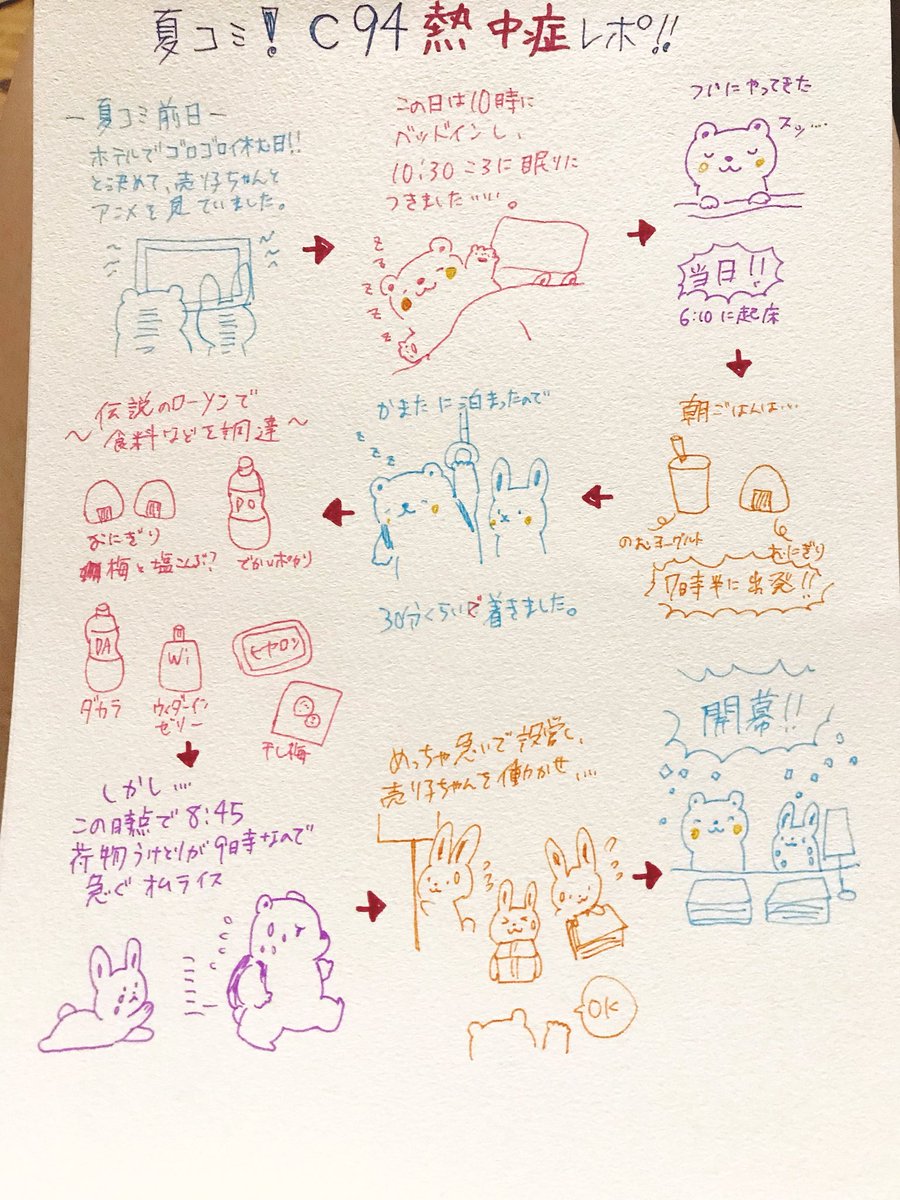 夏コミ! C94 熱中症レポ!!
ー夏コミ前日ー
ホテルでゴロゴロイ休日!!
と決めて、売り子ちゃんと
アニメを見ていました。
この日は10時に
ベッドインし、
10:30ころに眠りに
つきました……。
z
z
z
z
z
ついにやってきた
スッ…
当日!!
6:10に起床
朝ごはんは…
のむヨーグルト
おにぎり
7時半に出発!!
かまたに泊まったので
z
z
z
30分くらいで着きました。
伝説のローソンで
〜食料などを調達〜
おにぎり
梅と塩こんぶ?
PO
でかいポカリ
DA
ダカラ
Wi
ウィダーイン
ゼリー
ヒヤロン
干し梅
しかし…
この時点で8:45
荷物うけとりが9時なので
急ぐオムライス
めっちゃ急いで設営し、
売り子ちゃんを働かせ…
OK
開幕!!